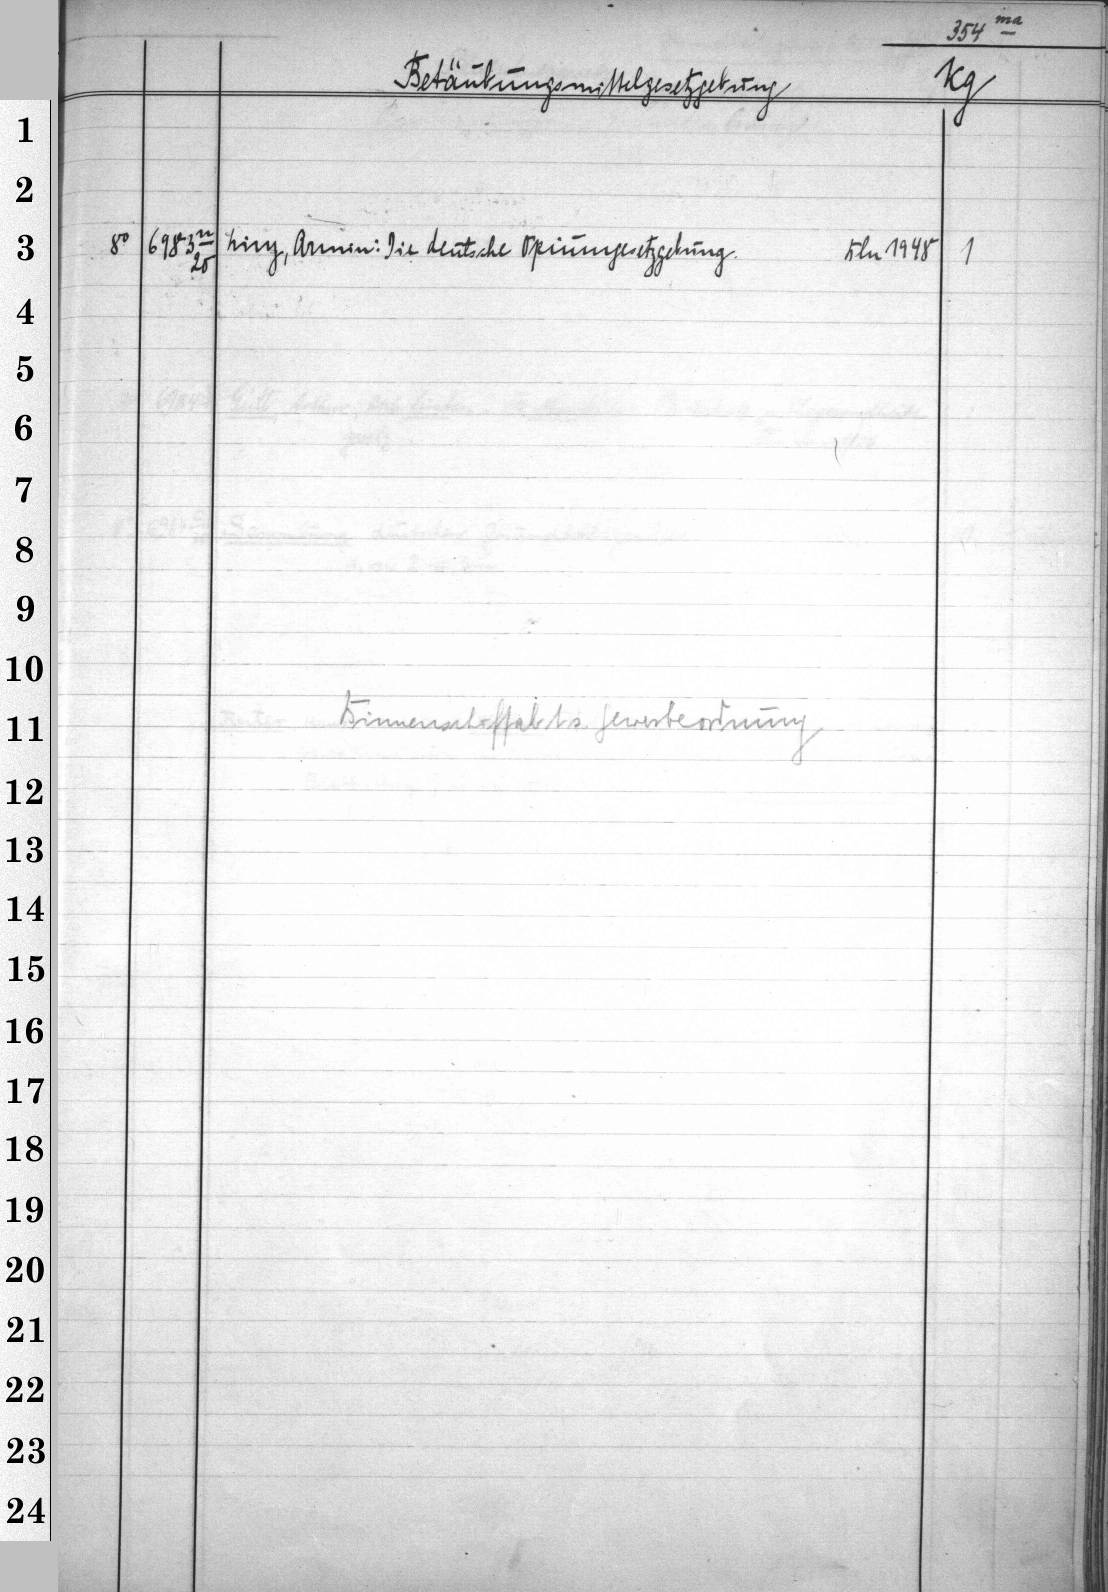 354 ma
Betäubungsmittelgesetzgebung Kg
1
2
3 8° 6983 n/25 Linz, Armin: Die deutsche Opiumgesetzgebung. Bln 1948 1
4
5
6
7
8
9
10
11 Binnenschiffahrts gewerbeordnung
12
13
14
15
16
17
18
19
20
21
22
23
24